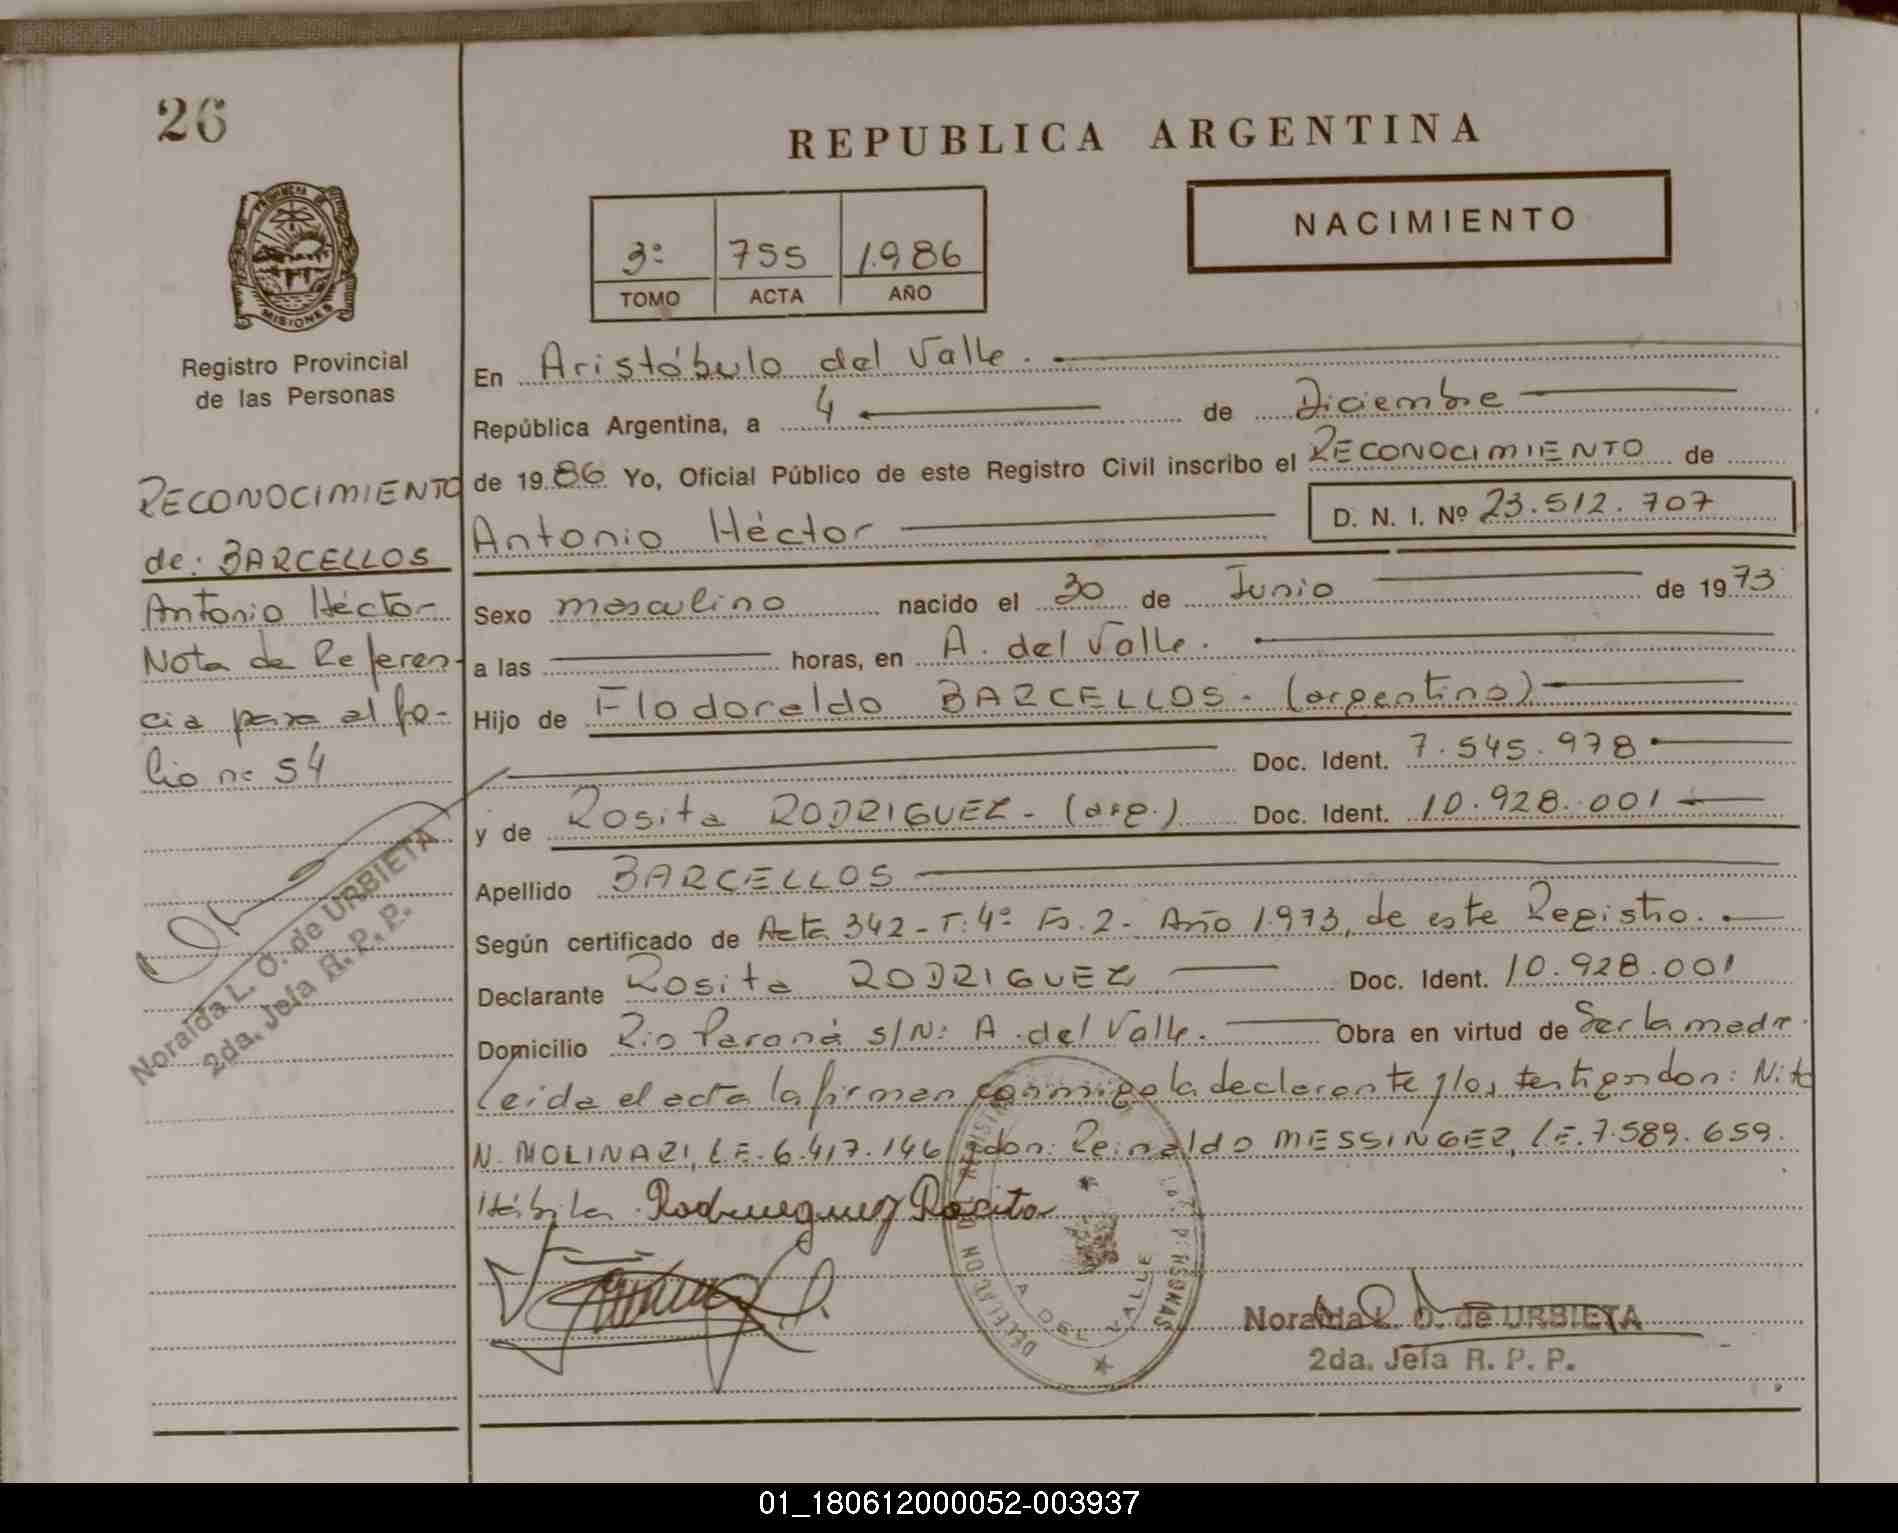 26
REPUBLICA ARGENTINA
NACIMIENTO
3º 755 1.986
TOMO ACTA AÑO
PROVINCIA
MISIONES
Registro Provincial
de las Personas
RECONOCIMIENTO
de: BARCELLOS
Antonio Héctor
Nota de Referen-
cia para el fo-
lio nº 54
Noraida L. O. de URBIETA
2da. Jefa R. P. P.
En Aristóbulo del Valle.
República Argentina, a 4 de Diciembre
de 1986 Yo, Oficial Público de este Registro Civil inscribo el RECONOCIMIENTO de
Antonio Héctor D. N. I. Nº 23.512.707
Sexo masculino nacido el 30 de Junio de 1973
a las horas, en A. del Valle.
Hijo de Flodoraldo BARCELLOS - (argentino)
Doc. Ident. 7.545.978
y de Rosita RODRIGUEZ - (arg.) Doc. Ident. 10.928.001
Apellido BARCELLOS
Según certificado de Acta 342 - T: 4º Fs. 2 - Año 1.973, de este Registro.
Declarante Rosita RODRIGUEZ Doc. Ident. 10.928.001
Domicilio Rio Paraná s/Nº A. del Valle. Obra en virtud de Ser la madre.
Leida el acta la firman conmigo la declarante y los testigos don: Nito
N. MOLINARI, LE. 6.417.146 y don: Reinaldo MESSINGER, LE. 7.589.659.
Hábiles. Rodrueguez Rosita
A DEL VALLE
Noraida L. O. de URBIETA
2da. Jefa R. P. P.
01_180612000052-003937